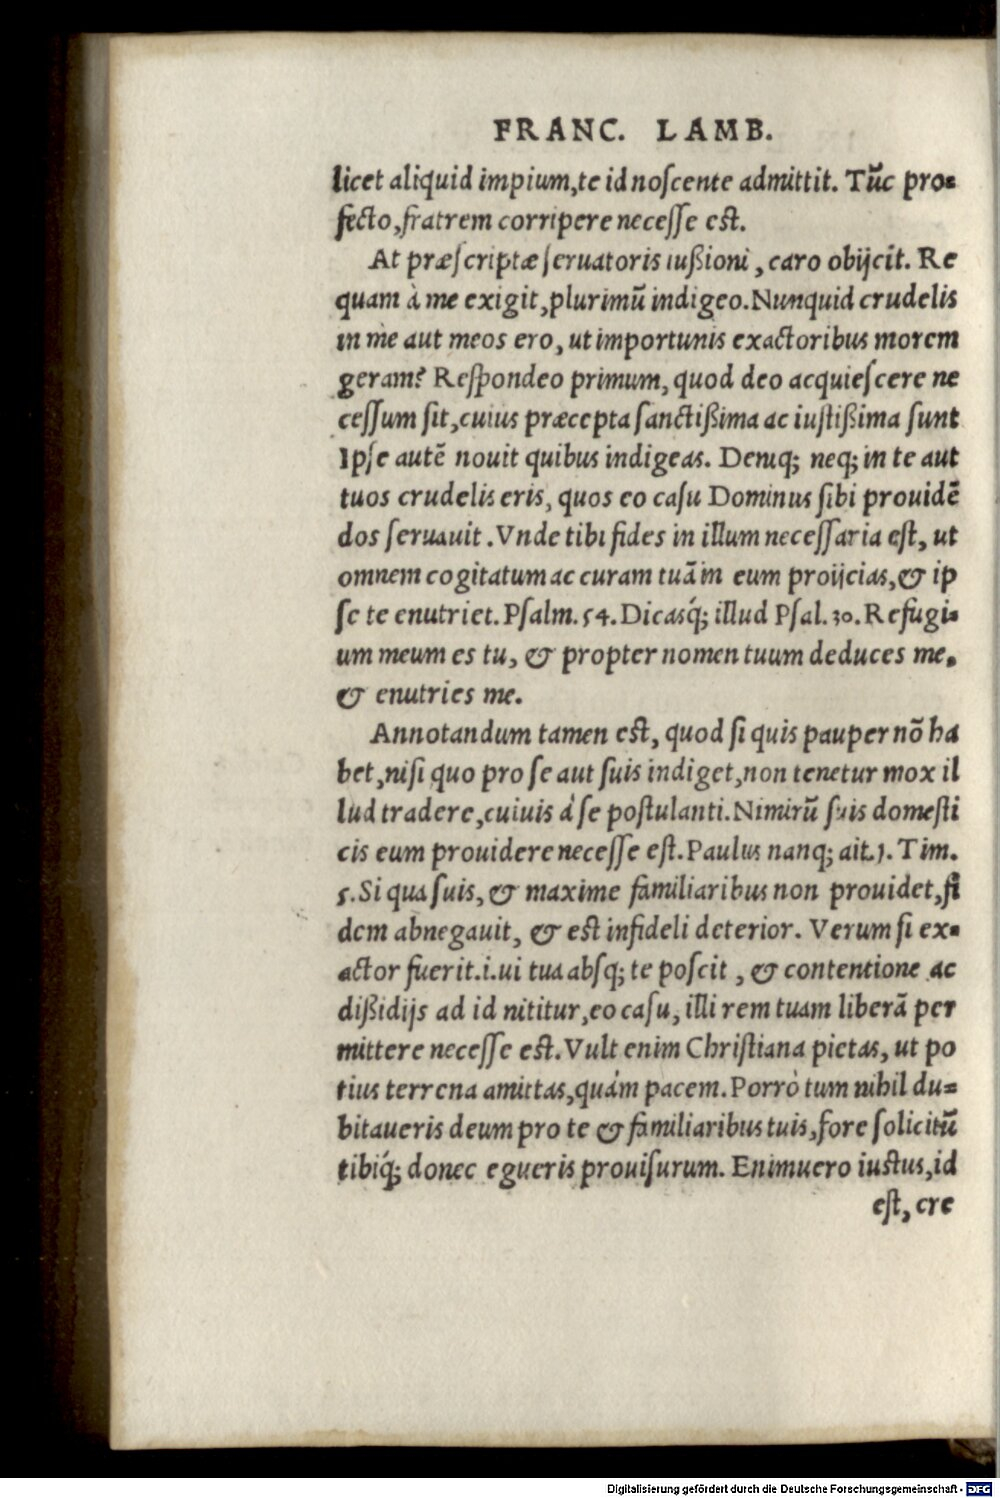 FRANC. LAMB.
licet aliquid impium, te id noscente admittit. Tũc pro-
fecto, fratrem corripere necesse est.
At præscriptæ seruatoris iußioni, caro obijcit. Re
quam à me exigit, plurimũ indigeo. Nunquid crudelis
in me aut meos ero, ut importunis exactoribus morem
geram? Respondeo primum, quod deo acquiescere ne
cessum sit, cuius præcepta sanctißima ac iustißima sunt
Ipse autẽ nouit quibus indigeas. Deniq; neq; in te aut
tuos crudelis eris, quos eo casu Dominus sibi prouidẽ
dos seruauit. Vnde tibi fides in illum necessaria est, ut
omnem cogitatum ac curam tuã in eum proijcias, & ip
se te enutriet. Psalm. 54. Dicasq́; illud Psal. 30. Refugi-
um meum es tu, & propter nomen tuum deduces me,
& enutries me.
Annotandum tamen est, quod si quis pauper nõ ha
bet, nisi quo pro se aut suis indiget, non tenetur mox il
lud tradere, cuiuis à se postulanti. Nimirũ suis domesti
cis eum prouidere necesse est. Paulus nanq; ait. 1. Tim.
5. Si qua suis, & maxime familiaribus non prouidet, fi
dem abnegauit, & est infideli deterior. Verum si ex-
actor fuerit. i. ui tua absq; te poscit, & contentione ac
dißidijs ad id nititur, eo casu, illi rem tuam liberã per
mittere necesse est. Vult enim Christiana pietas, ut po
tius terrena amittas, quám pacem. Porrò tum nihil du-
bitaueris deum pro te & familiaribus tuis, fore solicitũ
tibiq́; donec egueris prouisurum. Enimuero iustus, id
est, cre
Digitalisierung gefördert durch die Deutsche Forschungsgemeinschaft - DFG